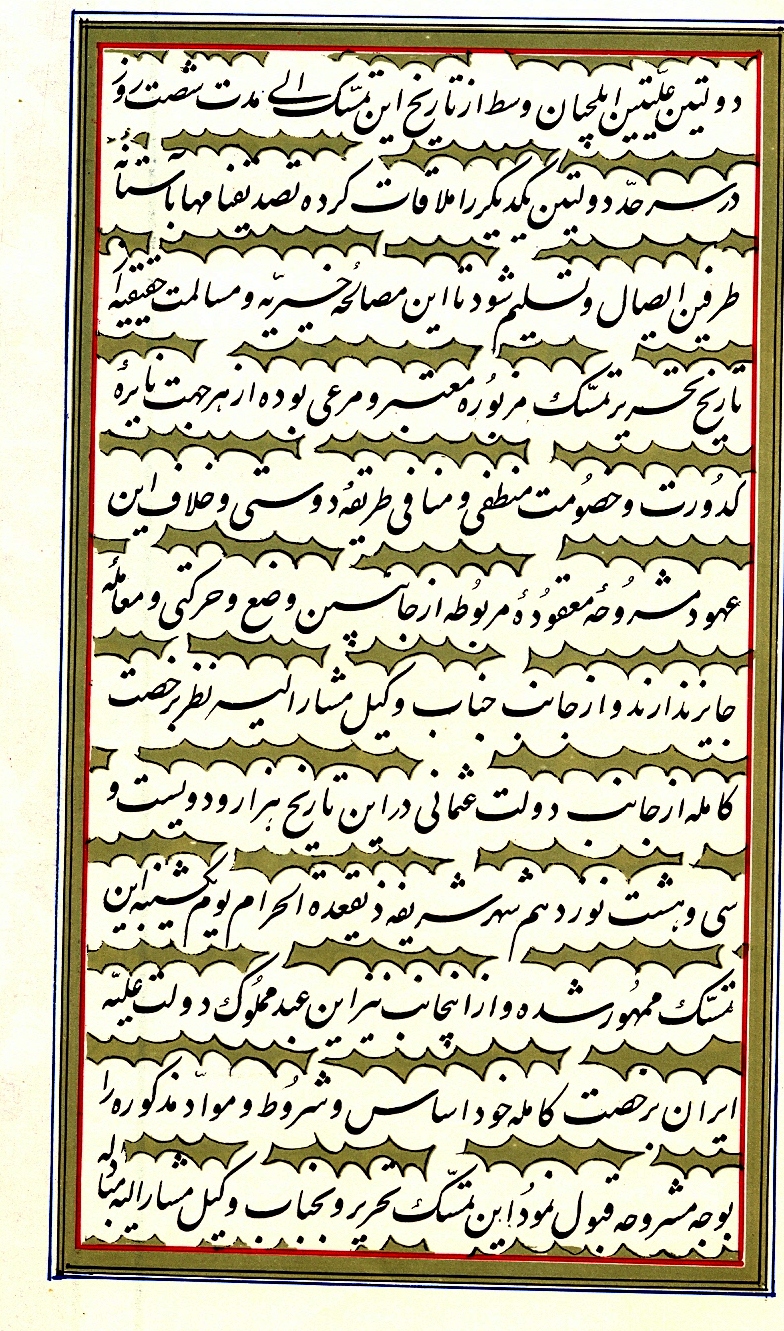 دولتین علّیتین ایلچیان وسط از تاریخ این تمسّک الے مدت شصت روز
در سر حدّ دولتین یکدیکر را ملاقات کرده تصدیقنامها بآستانهٔ
طرفین ایصال و تسلیم شود تا این مصالحهٔ خیریّه و مسالمت حقیقیه از
تاریخ تحریر تمسّک مزبُوره معتبر و مرعی بوده از هر جهت نایرهٔ
کدُورت و خصُومت منطفی و منافی طریقهٔ دوستی و خلاف این
عهود مشرُوحهٔ معقودُهٔ مربوُطه از جانبین وضع و حرکتی و معاملهٔ
جایز نذارند و از جانب جناب وکیل مشار الیه نظر برخصت
کامله از جانب دولت عثمانی در این تاریخ هزار و دویست و
سی و هشت نوزدهم شهر شریفه ذیقعدة الحرام یوم یکشنبه این
تمسّک ممهُور شده و از اینجانب نیز این عبد مملُوک دولت علیّه
ایران برخصت کامله خود اساس و شرُوط و موادّ مذکوره را
بوجه مشروحه قبول نمودُ این تمسّک تحریر و بجناب وکیل مشار الیه مبادله